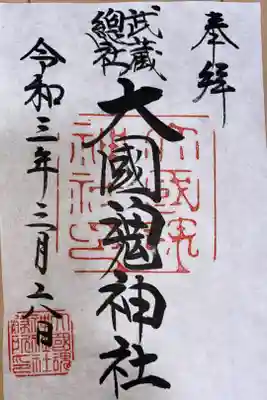 奉拝
武蔵
總社
大國魂神社
令和三年三月六日